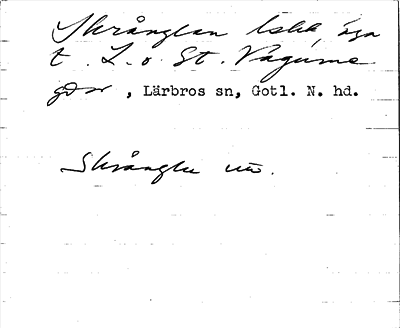 Skrånglan lskr, äga
t. L. o. St. Vägume
gdr, Lärbros sn, Gotl. N. hd.
Skrånglu